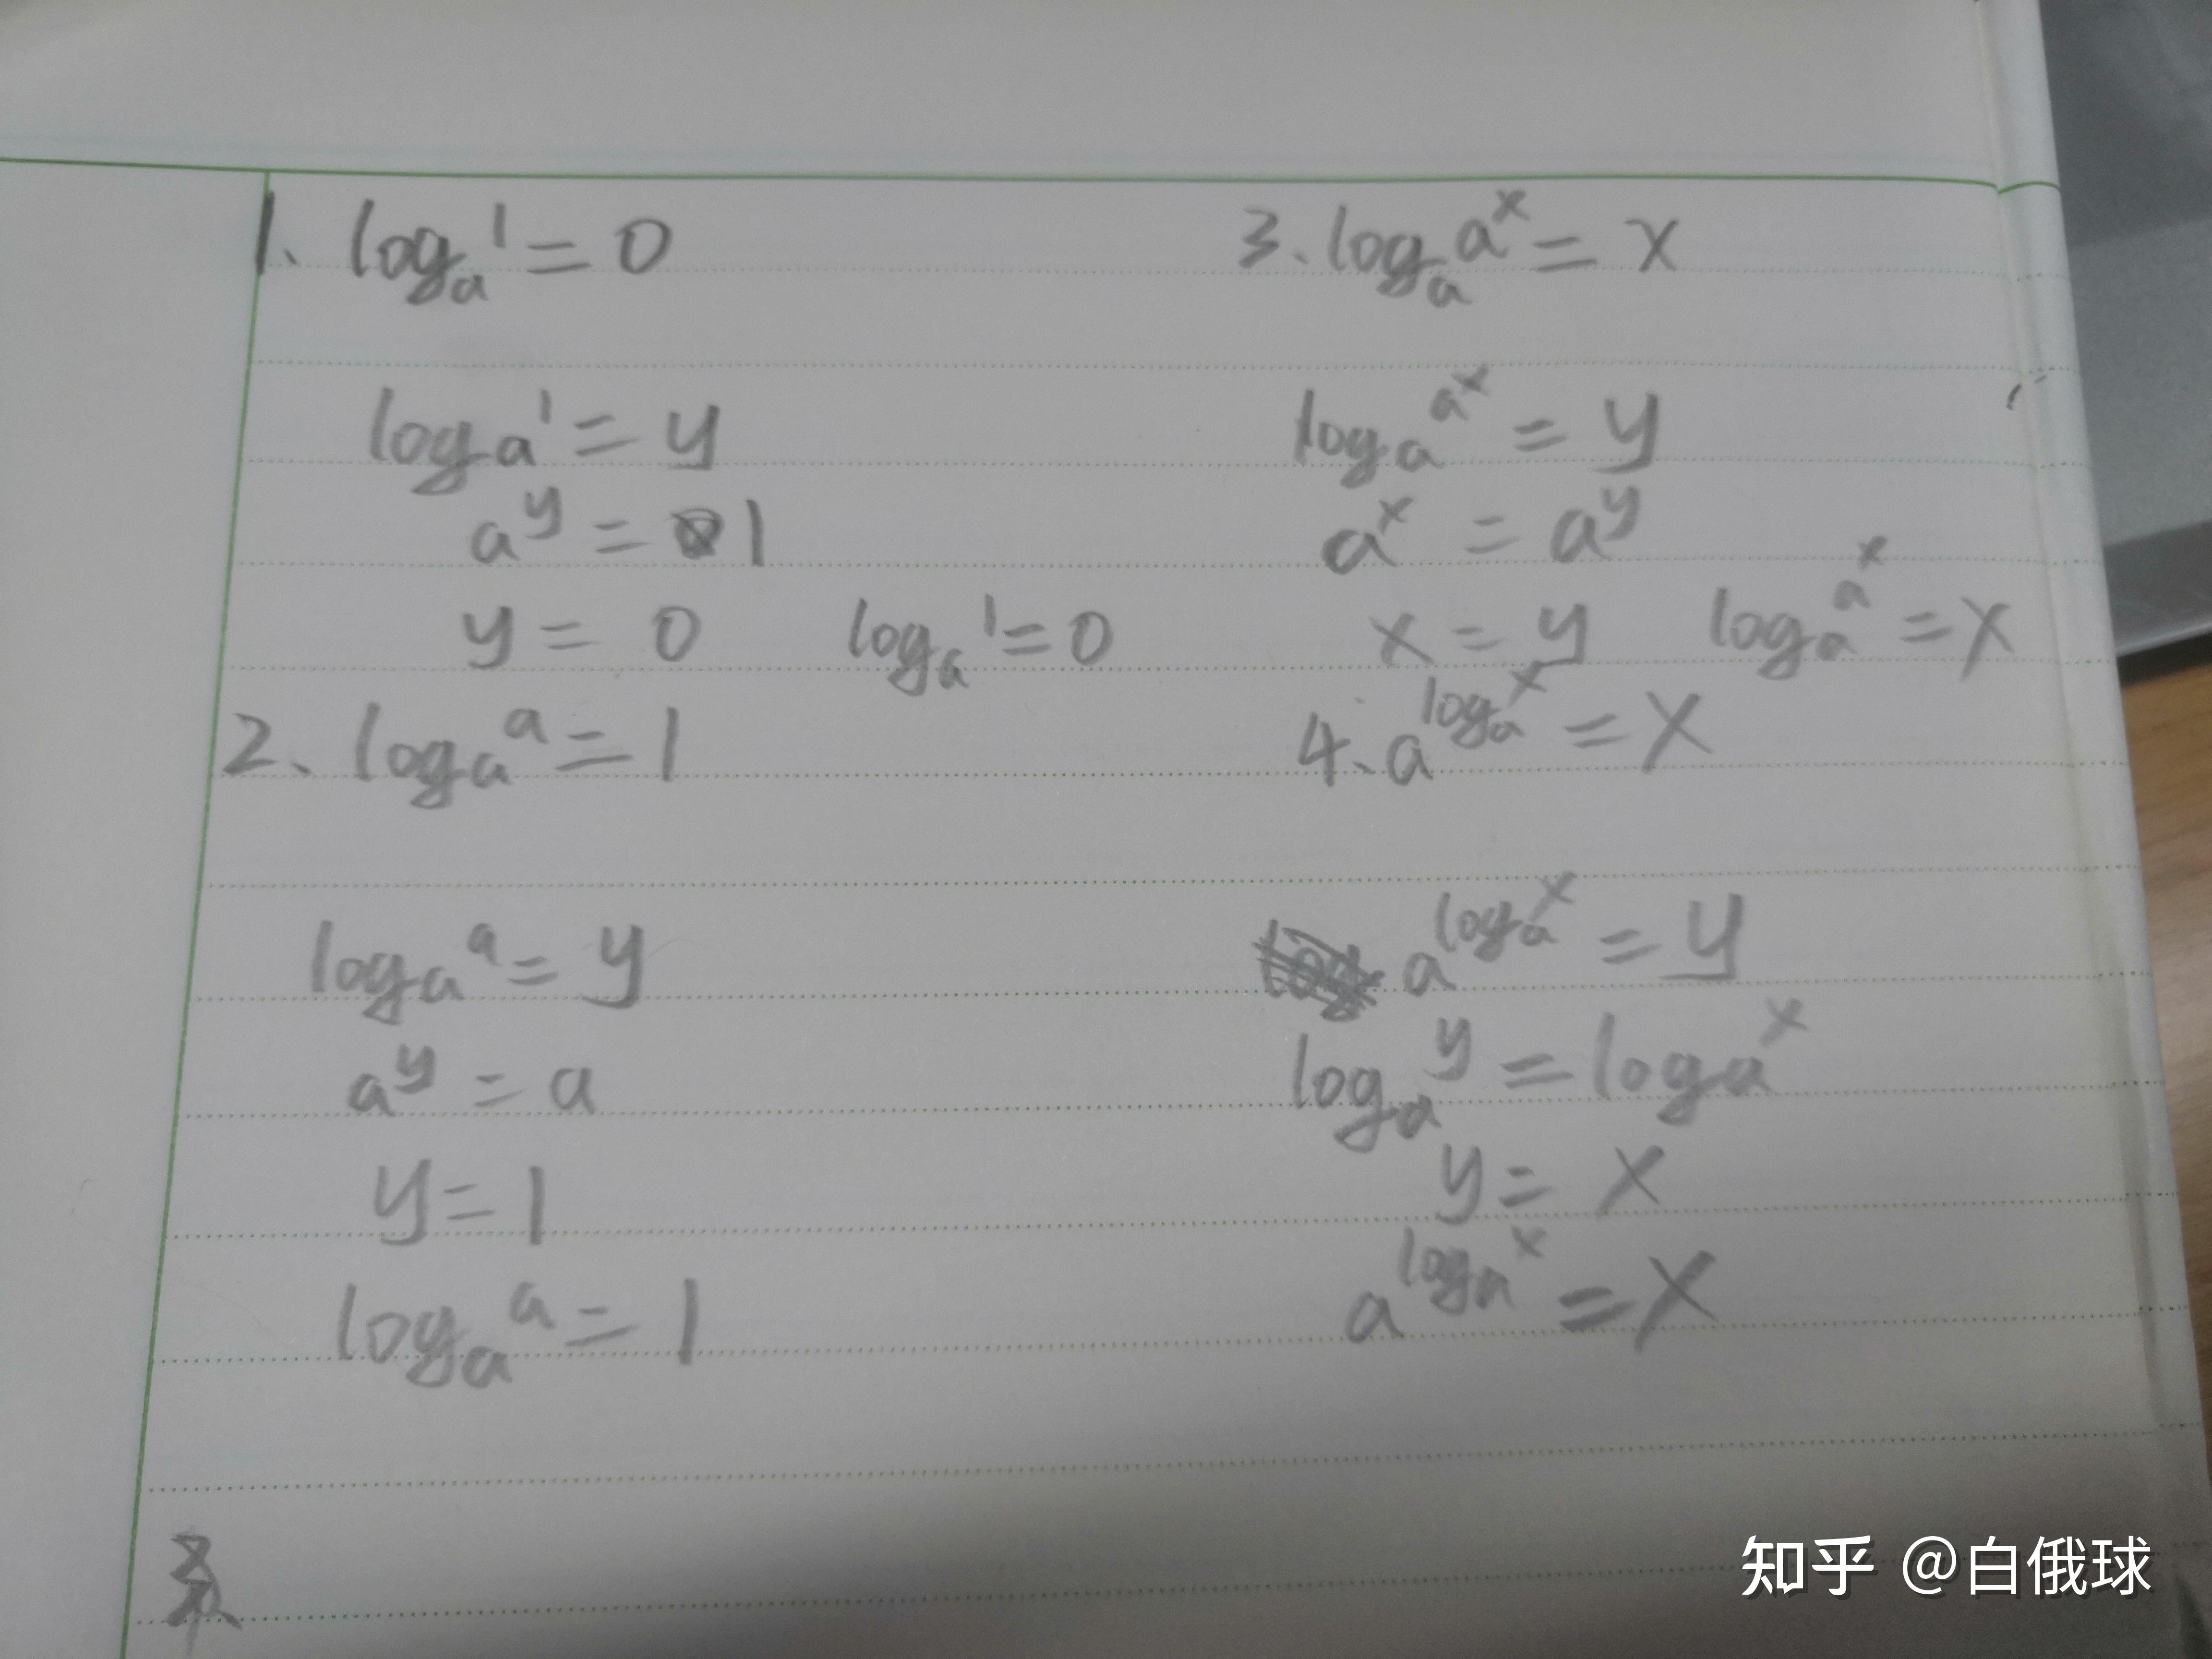 1、logₐ1=0
logₐ1=y
aʸ=1
y=0 logₐ1=0
2、logₐa=1
logₐa=y
aʸ=a
y=1
logₐa=1
3.logₐaˣ=x
logₐaˣ=y
aˣ=aʸ
x=y logₐaˣ=x
4、a^(logₐx)=x
a^(logₐx)=y
logₐy=logₐx
y=x
a^(logₐx)=x
知乎 @白俄球